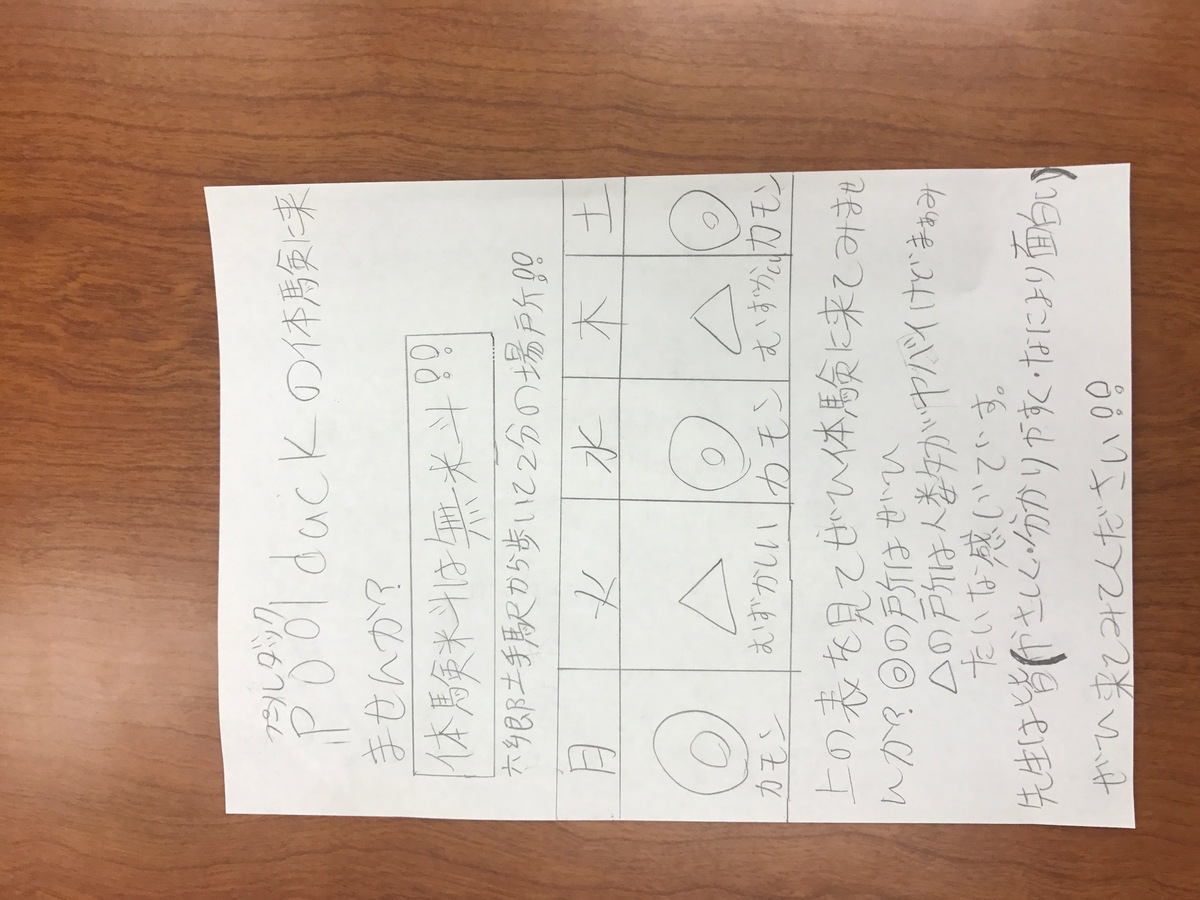 プールダック
Pool duckの体験に来
ませんか?
体験料は無料!!
六郷土手駅から歩いて2分の場所!!
月 火 水 木 土
◎ △ ◎ △ ◎
カモン むずかしい カモン むずかしい カモン
上の表を見てぜひ体験に来てみませ
んか?◎の所はぜひ
△の所は人数がヤバイけどまぁみ
たいな感じでいす。
先生は皆(やさしく・分かりやすく・なにより面白い)
ぜひ来てみてください!!